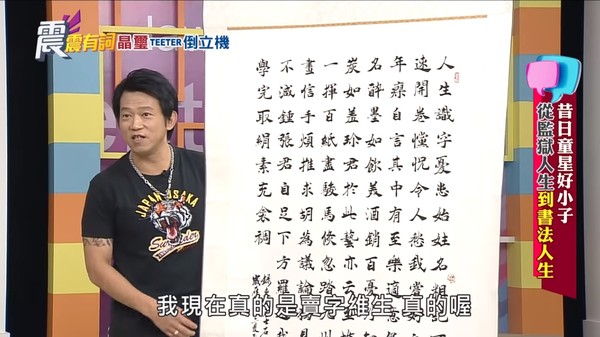 震震有詞 晶璽 TEETER 倒立機
昔日童星好小子
從監獄人生到書法人生
人生識字憂患始姓名粗記
速開卷惝怳令人愁我嘗好
年瘳自言其中有至樂適意
名醉墨如飲美酒銷百憂
炭如蓋珍君於此藝亦云至
一揮百紙盡駿馬倏忽踏
畫信手煩推求胡為議論
不減鍾張君自足下方羅
學完取絹素充衾裯
JAPAN OSAKA
我現在真的是賣字維生 真的喔